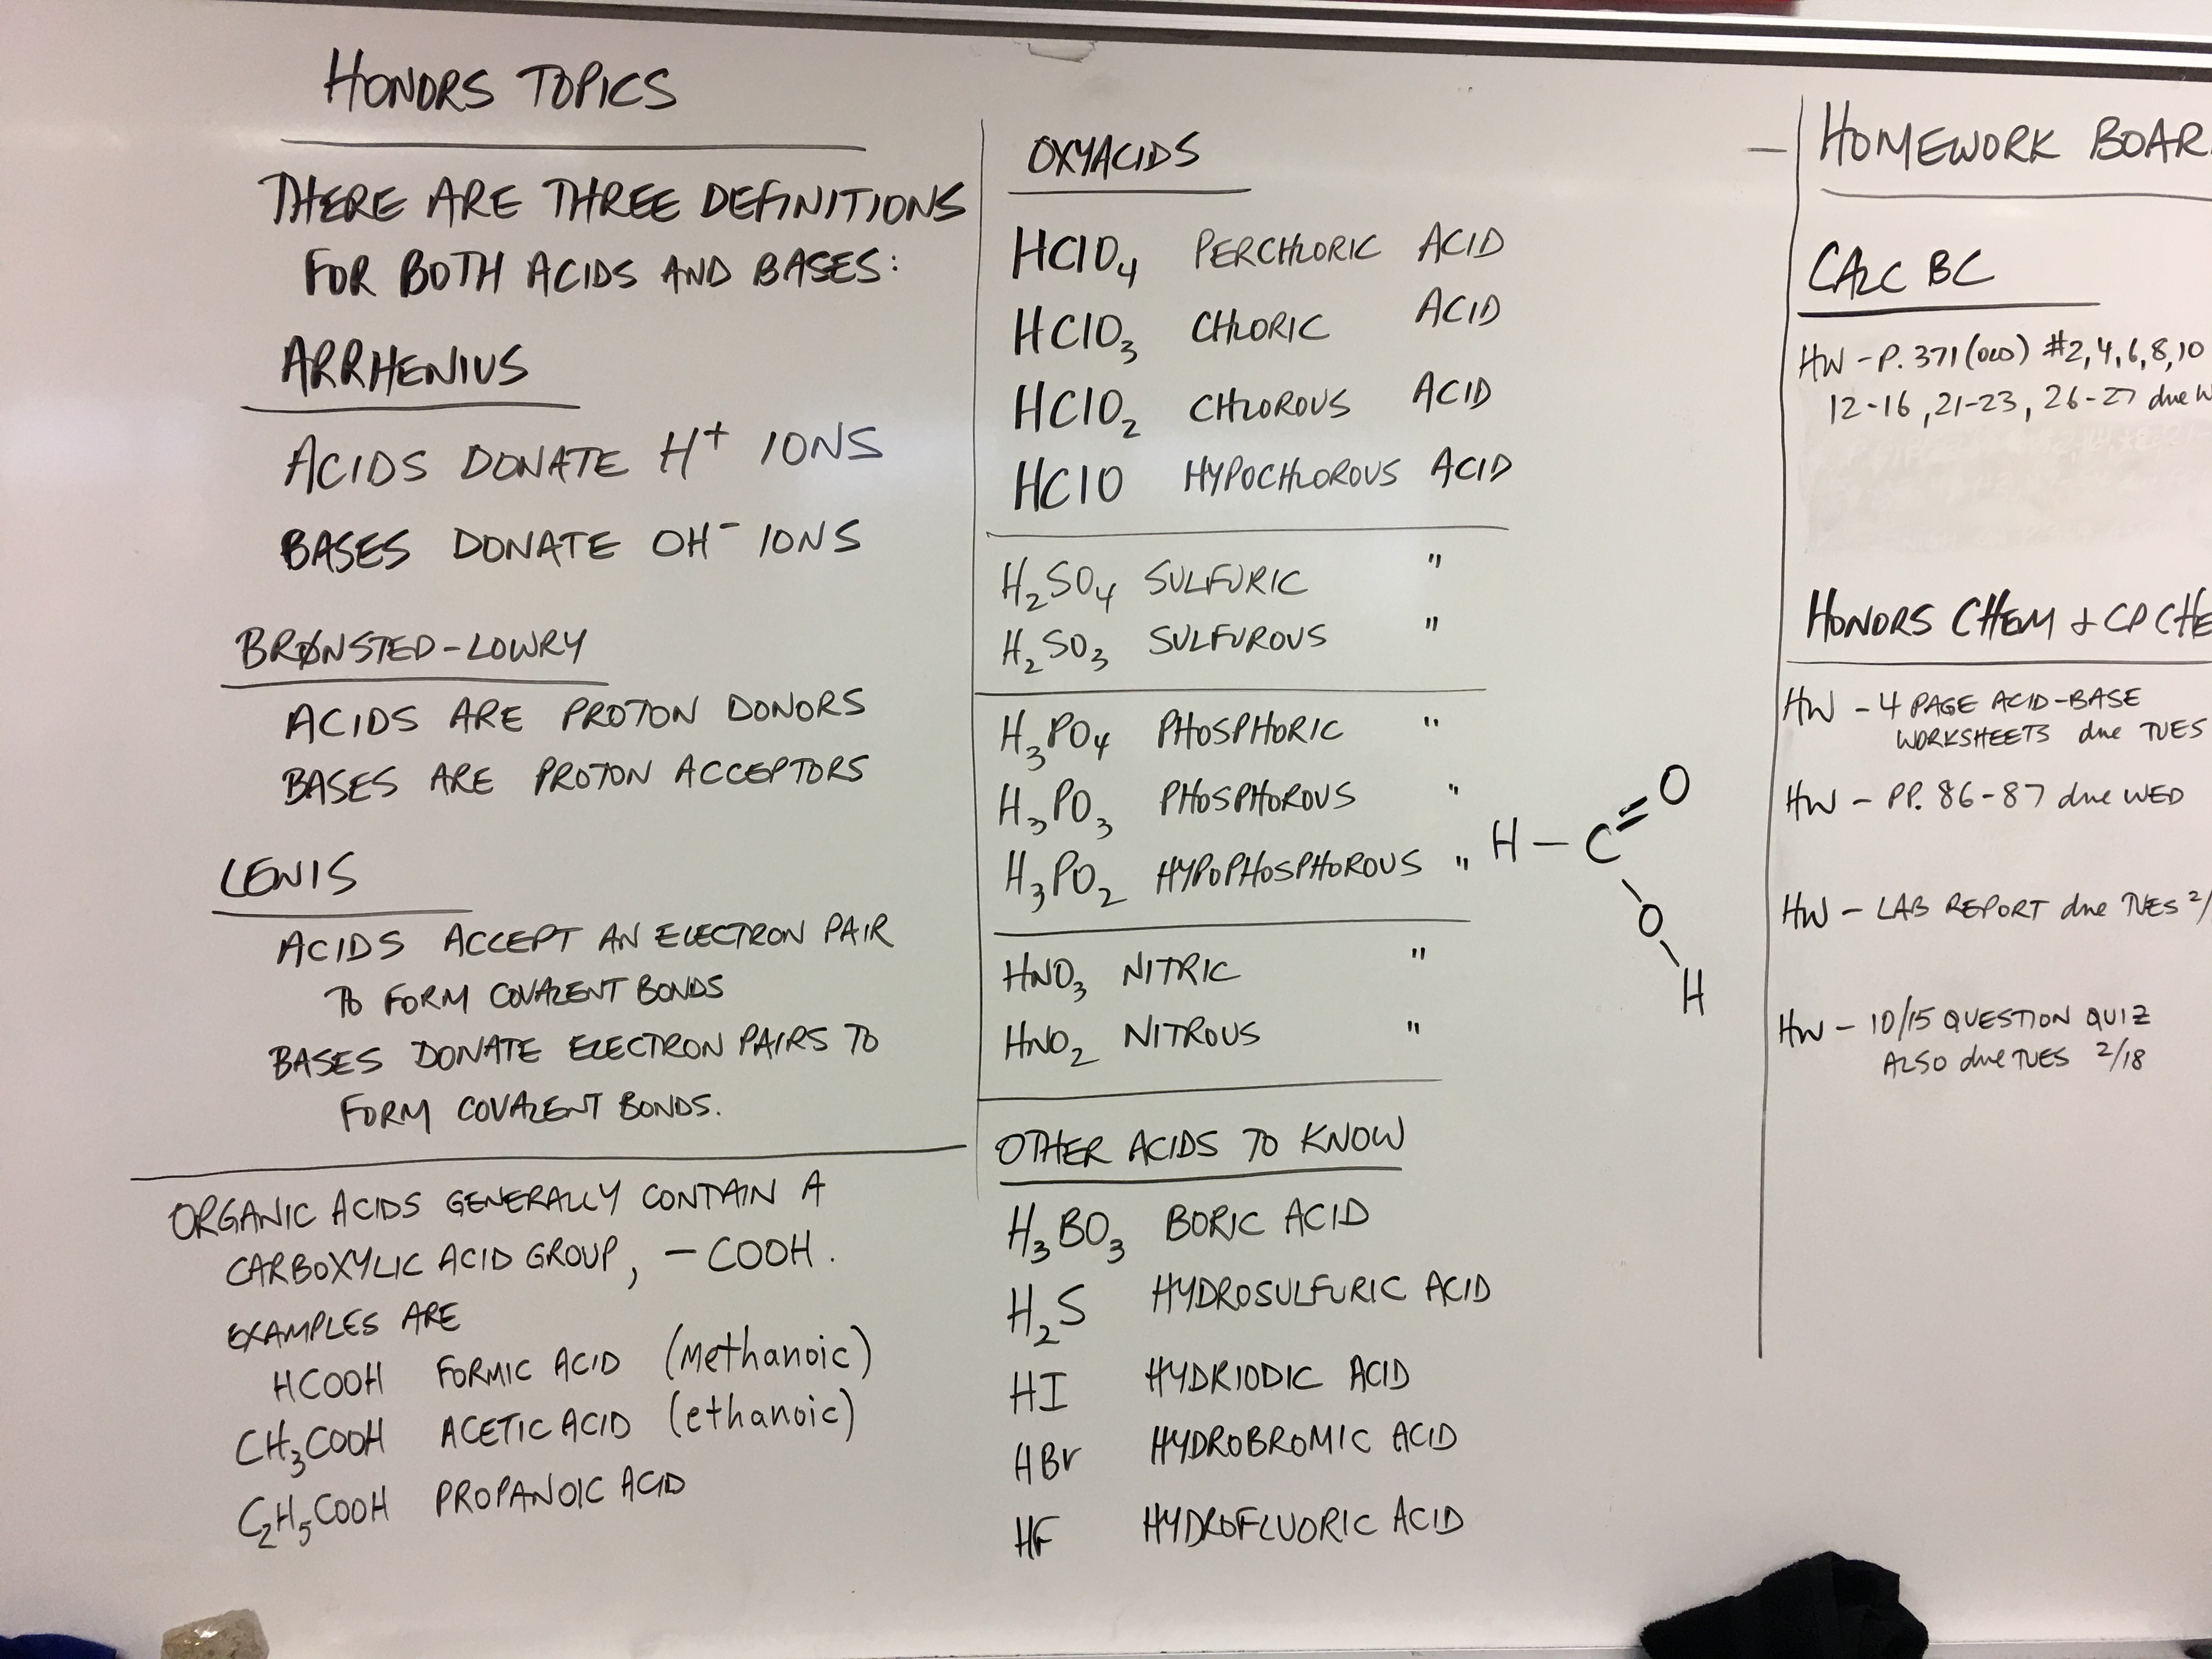 HONORS TOPICS
THERE ARE THREE DEFINITIONS
FOR BOTH ACIDS AND BASES:
ARRHENIUS
ACIDS DONATE H⁺ IONS
BASES DONATE OH⁻ IONS
BRØNSTED-LOWRY
ACIDS ARE PROTON DONORS
BASES ARE PROTON ACCEPTORS
LEWIS
ACIDS ACCEPT AN ELECTRON PAIR
TO FORM COVALENT BONDS
BASES DONATE ELECTRON PAIRS TO
FORM COVALENT BONDS.
ORGANIC ACIDS GENERALLY CONTAIN A
CARBOXYLIC ACID GROUP, -COOH.
EXAMPLES ARE
HCOOH FORMIC ACID (methanoic)
CH₃COOH ACETIC ACID (ethanoic)
C₂H₅COOH PROPANOIC ACID
OXYACIDS
HClO₄ PERCHLORIC ACID
HClO₃ CHLORIC ACID
HClO₂ CHLOROUS ACID
HClO HYPOCHLOROUS ACID
H₂SO₄ SULFURIC "
H₂SO₃ SULFUROUS "
H₃PO₄ PHOSPHORIC "
H₃PO₃ PHOSPHOROUS "
H₃PO₂ HYPOPHOSPHOROUS "
HNO₃ NITRIC "
HNO₂ NITROUS "
OTHER ACIDS TO KNOW
H₃BO₃ BORIC ACID
H₂S HYDROSULFURIC ACID
HI HYDRIODIC ACID
HBr HYDROBROMIC ACID
HF HYDROFLUORIC ACID
O
H - C
O
H
HOMEWORK BOAR
CALC BC
HW - P. 371 (OLD) #2,4,6,8,10
12-16, 21-23, 26-27 due W
HONORS CHEM & CP CHE
HW - 4 PAGE ACID-BASE
WORKSHEETS due TUES
HW - PP. 86-87 due WED
HW - LAB REPORT due TUES 2/
HW - 10/15 QUESTION QUIZ
ALSO due TUES 2/18